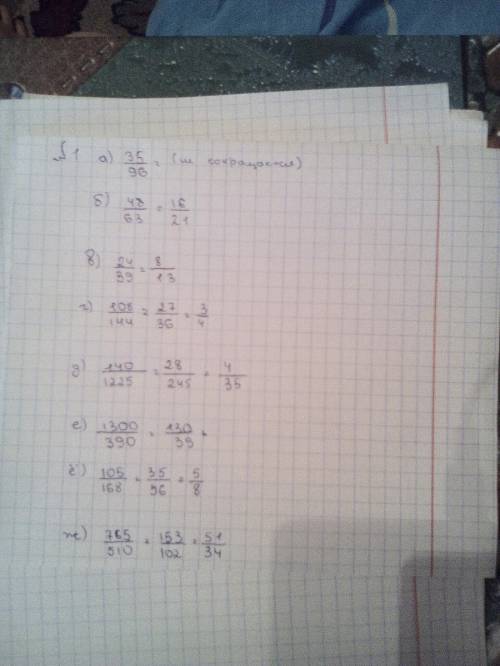 №1 а) 35/96 = (не сокращается)
б) 48/63 = 16/21
в) 24/39 = 8/13
г) 108/144 = 27/36 = 3/4
д) 140/1225 = 28/245 = 4/35
е) 1300/390 = 130/39
ё) 105/168 = 35/56 = 5/8
ж) 765/510 = 153/102 = 51/34